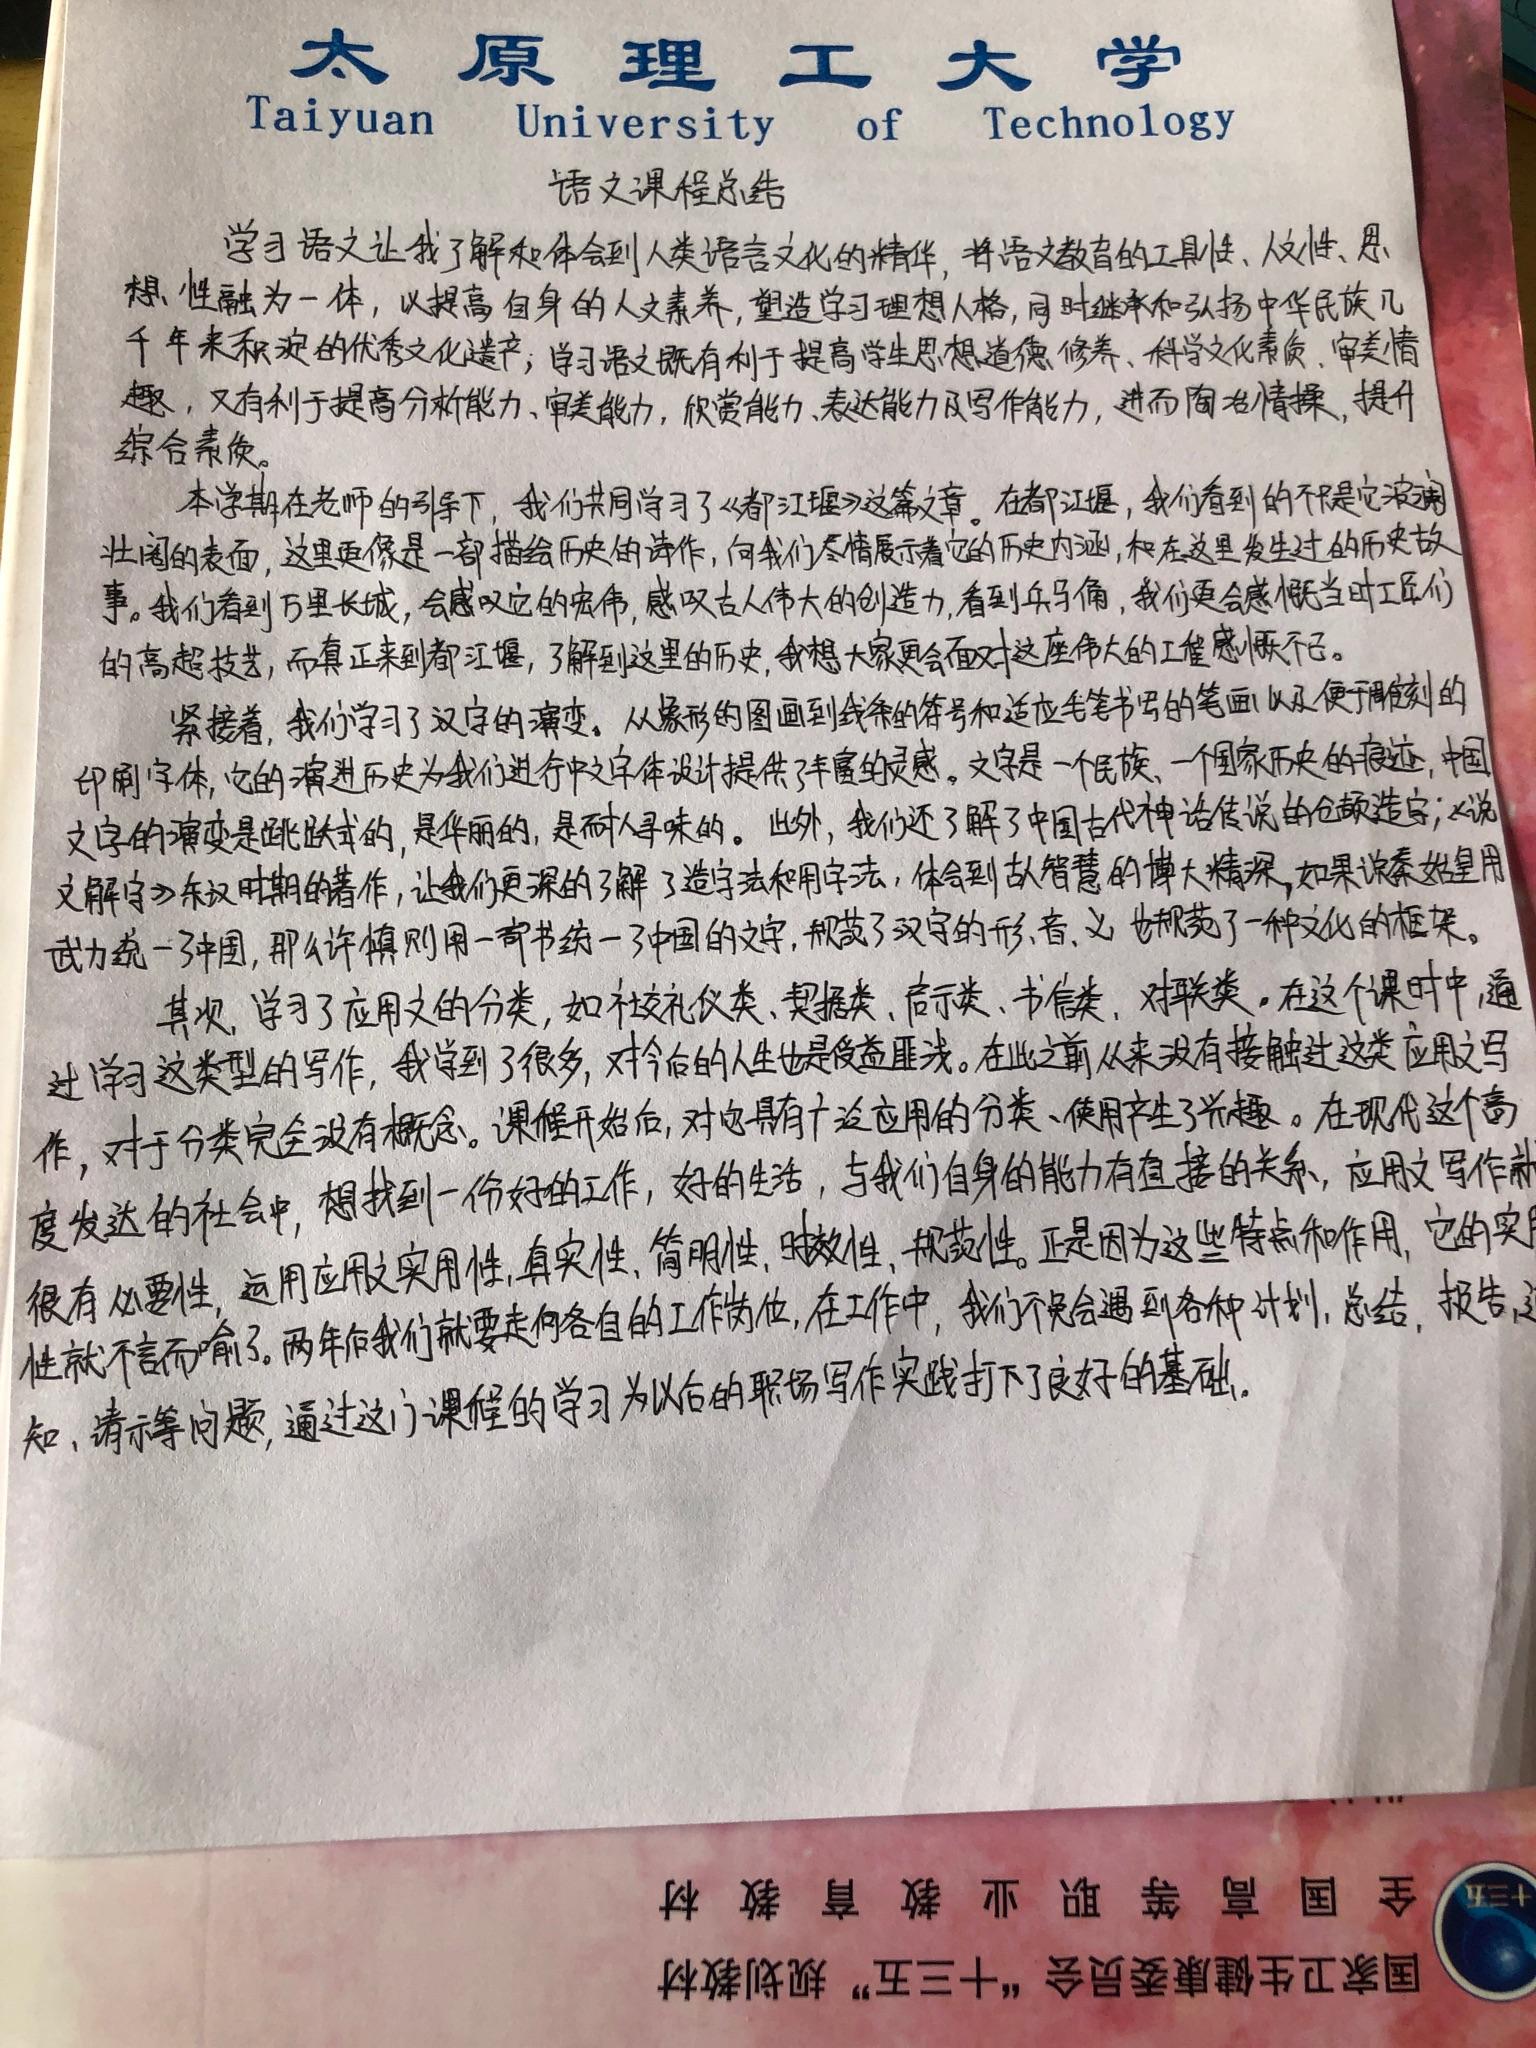 太原理工大学
Taiyuan University of Technology
语文课程总结
学习语文让我了解和体会到人类语言文化的精华，将语文教育的工具性、人文性、思
想性融为一体，以提高自身的人文素养，塑造学习理想人格，同时继承和弘扬中华民族几
千年来积淀的优秀文化遗产；学习语文既有利于提高学生思想道德修养、科学文化素质、审美情
趣，又有利于提高分析能力、审美能力，欣赏能力、表达能力及写作能力，进而陶冶情操，提升
综合素质。
本学期在老师的引导下，我们共同学习了《都江堰》这篇文章。在都江堰，我们看到的不只是它波澜
壮阔的表面，这里更像是一部描绘历史的诗作，向我们尽情展示着它的历史内涵，和在这里发生过的历史故
事。我们看到万里长城，会感叹它的宏伟，感叹古人伟大的创造力，看到兵马俑，我们更会感慨当时工匠们
的高超技艺，而真正来到都江堰，了解到这里的历史，我想大家更会面对这座伟大的工程感慨不已。
紧接着，我们学习了汉字的演变。从象形的图画到线条的符号和适应毛笔书写的笔画以及便于雕刻的
印刷字体，它的演进历史为我们进行中文字体设计提供了丰富的灵感。文字是一个民族、一个国家历史的痕迹，中国
文字的演变是跳跃式的，是华丽的，是耐人寻味的。此外，我们还了解了中国古代神话传说的仓颉造字；《说
文解字》东汉时期的著作，让我们更深的了解了造字法和用字法，体会到古人智慧的博大精深，如果说秦始皇用
武力统一了中国，那么许慎则用一部书统一了中国的文字，规范了汉字的形、音、义，也规范了一种文化的框架。
其次，学习了应用文的分类，如社交礼仪类、契据类、启示类、书信类，对联类。在这个课时中，通
过学习这类型的写作，我学到了很多，对今后的人生也是受益匪浅。在此之前从来没有接触过这类应用文写
作，对于分类完全没有概念。课程开始后，对它具有广泛应用的分类、使用产生了兴趣。在现代这个高
度发达的社会中，想找到一份好的工作，好的生活，与我们自身的能力有直接的关系，应用文写作就
很有必要性，运用应用文实用性，真实性、简明性，时效性、规范性。正是因为这些特点和作用，它的实用
性就不言而喻了。两年后我们就要走向各自的工作岗位，在工作中，我们不免会遇到各种计划，总结，报告，通
知、请示等问题，通过这门课程的学习为以后的职场写作实践打下了良好的基础。
全国高等职业教育教材
国家卫生健康委员会“十三五”规划教材
十三五